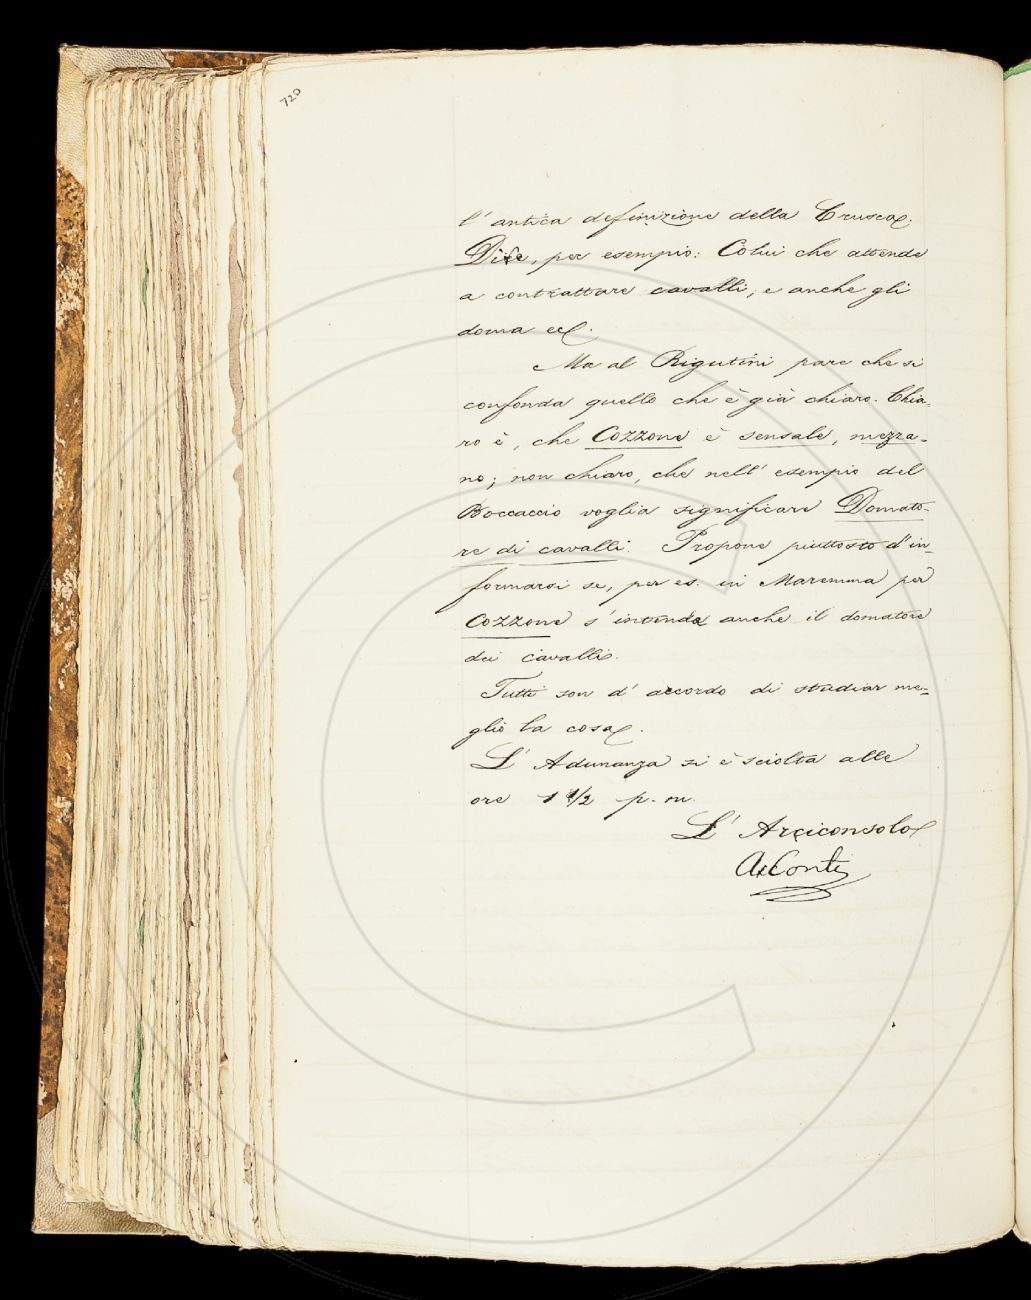 720
l' antica definizione della Crusca.
Dice, per esempio: Colui che attende
a contrattare cavalli, e anche gli
doma ec.
Ma al Rigutini pare che si
confonda quello che è già chiaro. Chia-
ro è, che Cozzone è sensale, mezza-
no; non chiaro, che nell' esempio del
Boccaccio voglia significare Domato-
re di cavalli. Propone piuttosto d' in-
formarsi se, per es. in Maremma per
Cozzone s' intenda anche il domatore
dei cavalli.
Tutti son d' accordo di studiar me-
glio la cosa.
L' Adunanza si è sciolta alle
ore 1 1/2 p. m.
L' Arciconsolo
A. Conti